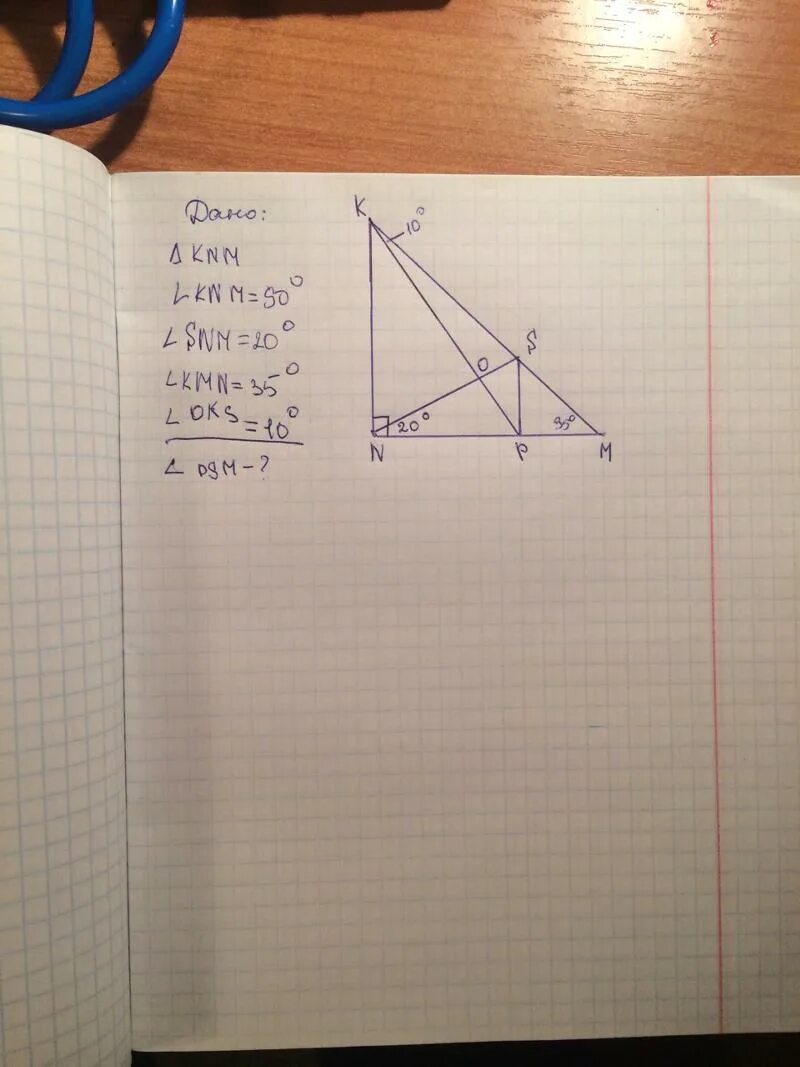 Дано:
Δ KNM
∠KNM=90°
∠SNM=20°
∠KMN=35°
∠OKS=10°
∠OSM-?
K
10°
S
O
20°
35°
N
P
M